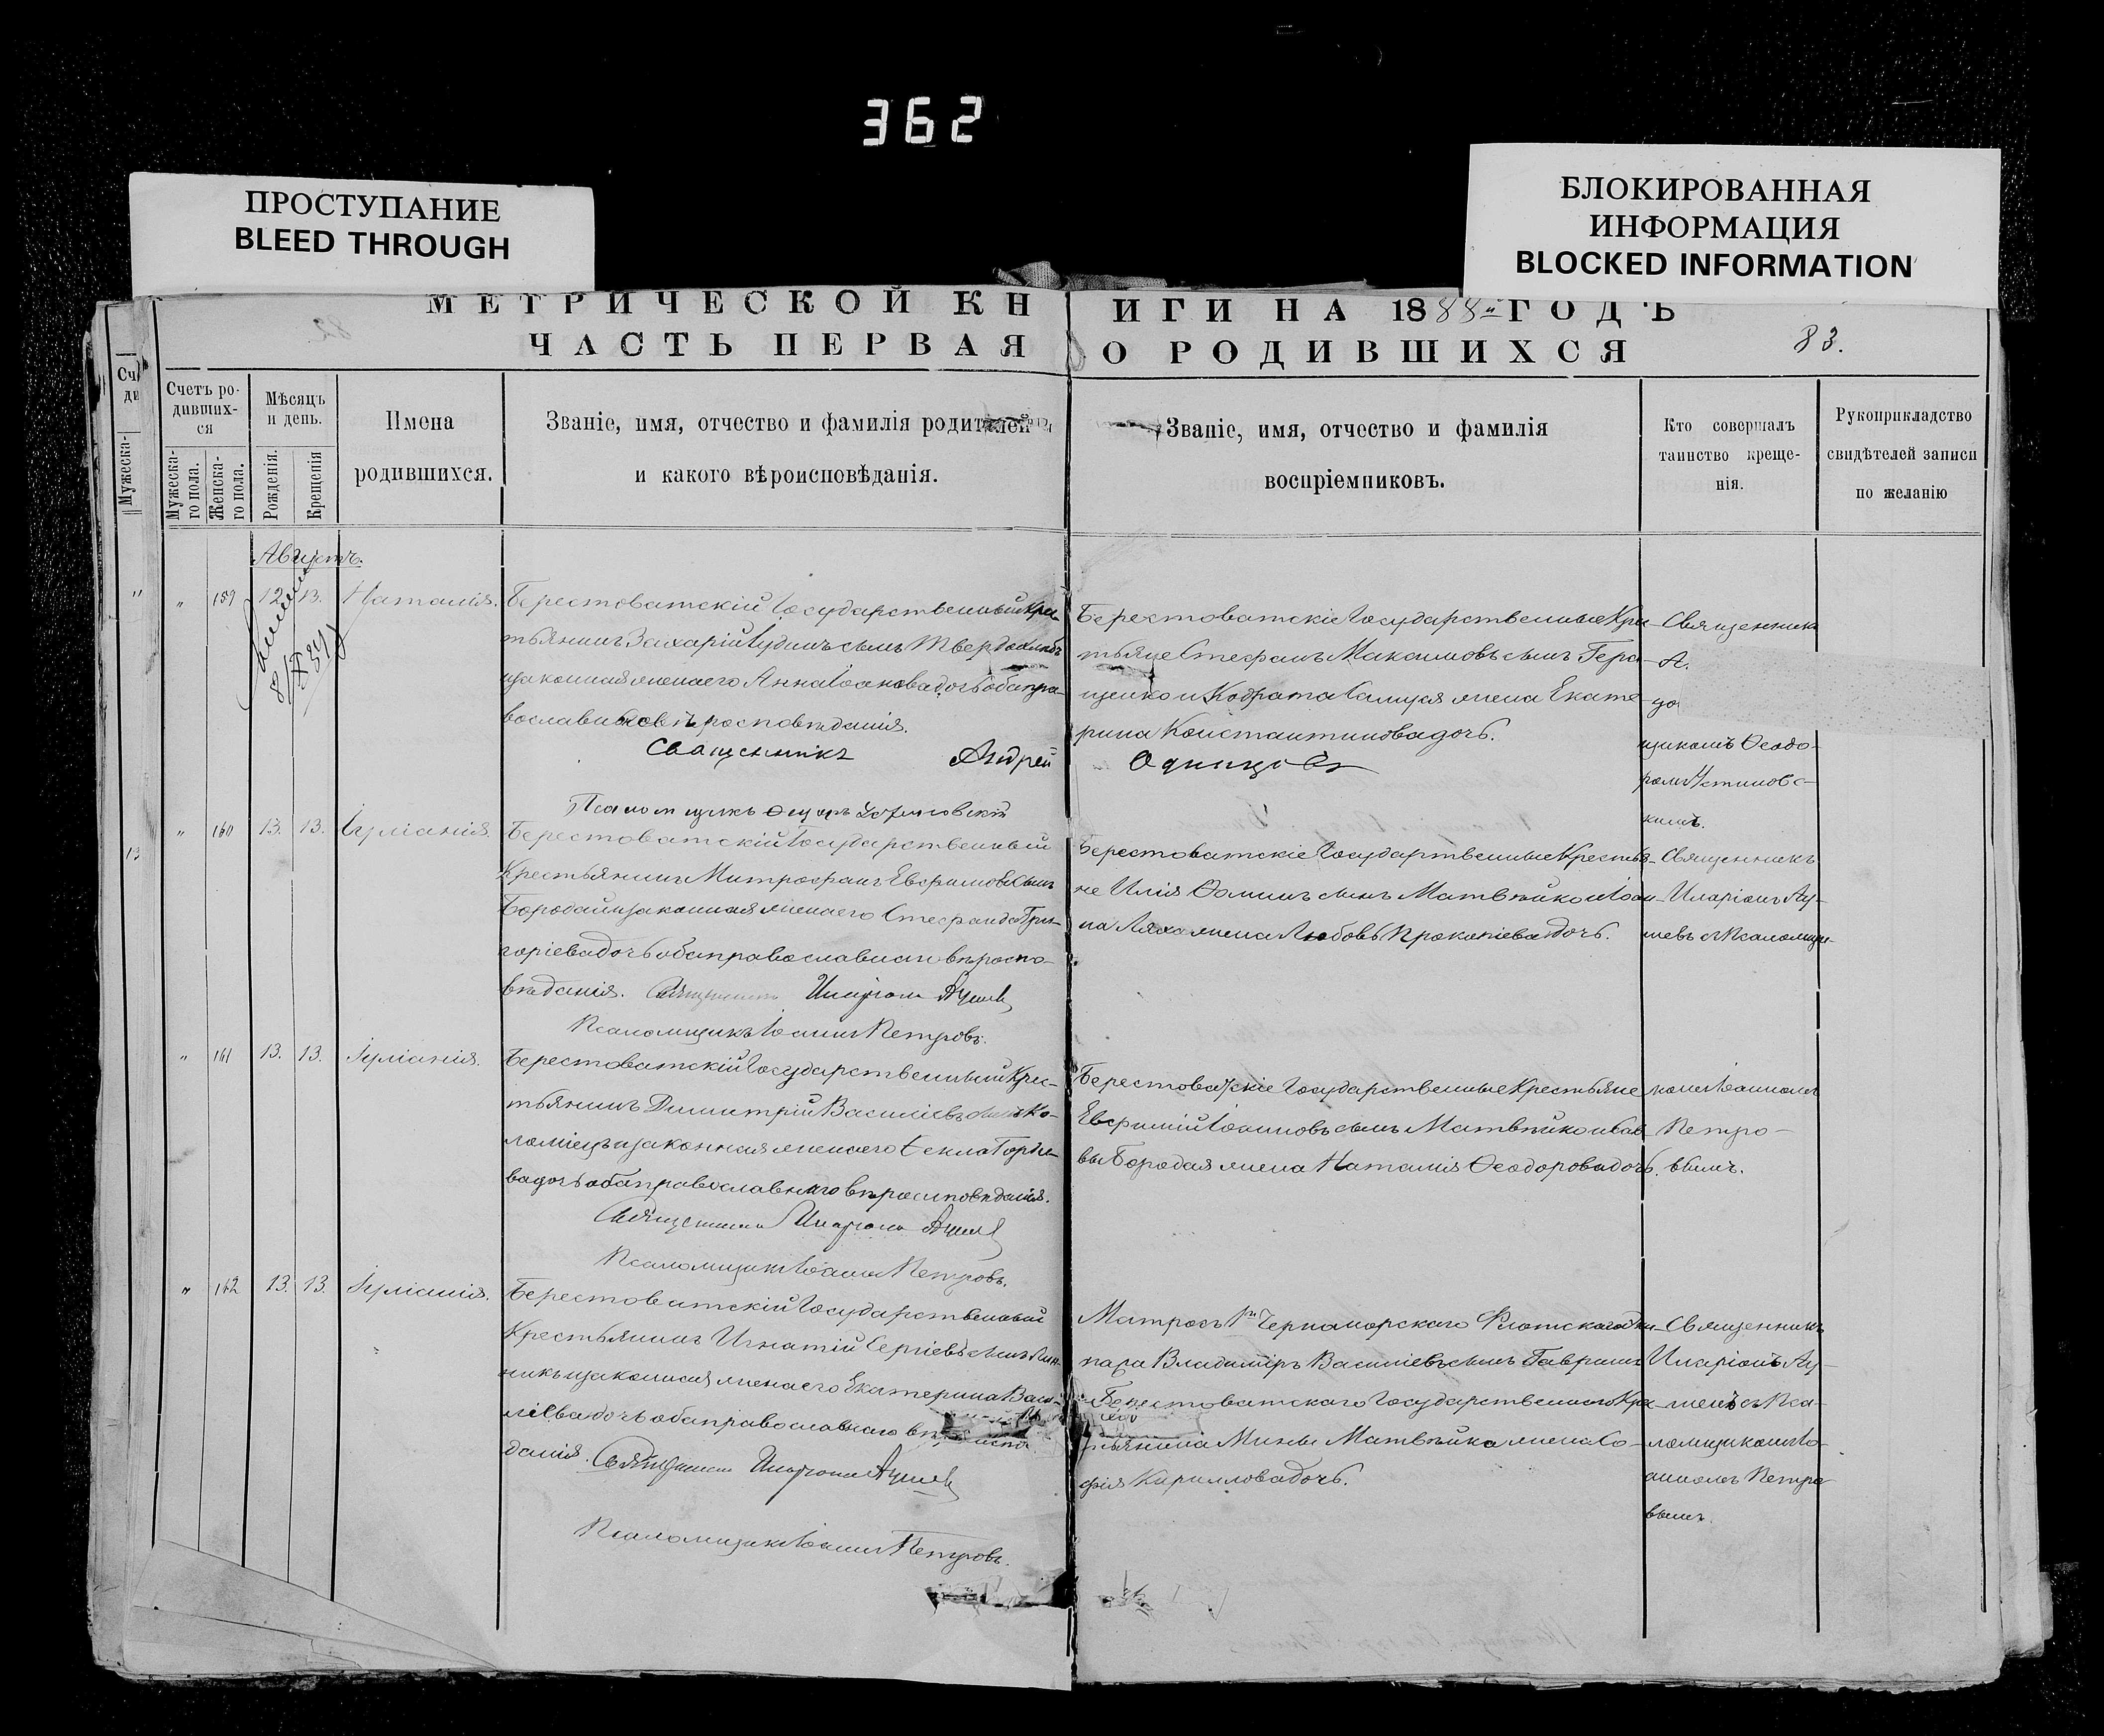 362
ПРОСТУПАНИЕ
BLEED THROUGH
БЛОКИРОВАННАЯ
ИНФОРМАЦИЯ
BLOCKED INFORMATION
МЕТРИЧЕСКОЙ КНИГИ НА 1888й ГОДЪ
ЧАСТЬ ПЕРВАЯ О РОДИВШИХСЯ
83.
Счетъ ро-
дивших-
ся
Мужеска-
го пола.
Женска-
го пола.
Мѣсяцъ
и день.
Рожденія.
Крещенія
Имена
родившихся.
Званіе, имя, отчество и фамилія родителей
и какого вѣроисповѣданія.
Званіе, имя, отчество и фамилія
воспріемниковъ.
Кто совершалъ
таинство креще-
нія.
Рукоприкладство
свидѣтелей записи
по желанію
Августъ.
" 159 12 13. Наталія.
Берестоватскій Государственный Крес-
тьянинъ Захарій сынъ
и законная жена его Анна дочь оба пра-
вославнаго вѣроисповѣданія.
Священникъ Андрей Одинцовъ
Псаломщикъ
Берестоватскіе Государственные Крес-
тьяне Стефанъ Максимовъ сынъ Гера-
щенко и Кодрата жена Екате-
рина Константинова дочь.
Священникъ
А.
щикомъ Ѳеодо-
ромъ Устиновс-
кимъ.
" 160 13. 13. Іуліанія.
Берестоватскій Государственный
Крестьянинъ Митрофанъ Евфимовъ сынъ
Бородай и законная жена его Стефанида Гри-
горіева дочь оба православнаго вѣроиспо-
вѣданія. Священникъ Иларіонъ
Псаломщикъ Іоаннъ Петровъ.
Берестоватскіе Государственные Крестья-
не Илія Ѳоминъ сынъ Матвѣйко и Іоан-
на Ляха жена Любовь Прокопіева дочь.
Священникъ
Иларіонъ
съ Псаломщи-
" 161 13. 13. Іуліанія.
Берестоватскій Государственный Крес-
тьянинъ Димитрій Василіевъ сынъ Ко-
ломіецъ и законная жена его Ѳекла
дочь оба православнаго вѣроисповѣданія.
Священникъ Иларіонъ
Псаломщикъ Іоаннъ Петровъ.
Берестоватскіе Государственные Крестьяне
Евфимій Іоанновъ сынъ Матвѣйко и Сав-
вы Бородая жена Наталія Ѳеодорова дочь.
комъ Іоанномъ
Петро-
вымъ.
" 162 13. 13. Іуліанія.
Берестоватскій Государственный
Крестьянинъ Игнатій Сергіевъ сынъ
и законная жена его Екатерина Васи-
ліева дочь оба православнаго
данія. Священникъ Иларіонъ
Псаломщикъ Іоаннъ Петровъ.
Матросъ 1го Черноморскаго Флотскаго Эки-
пажа Владиміръ Василіевъ сынъ
Берестоватскаго Государственнаго Крес-
тьянина Мины Матвѣйка жена Со-
фія Кириллова дочь.
Священникъ
Иларіонъ
съ Пса-
ломщикомъ Іо-
анномъ Петро-
вымъ.